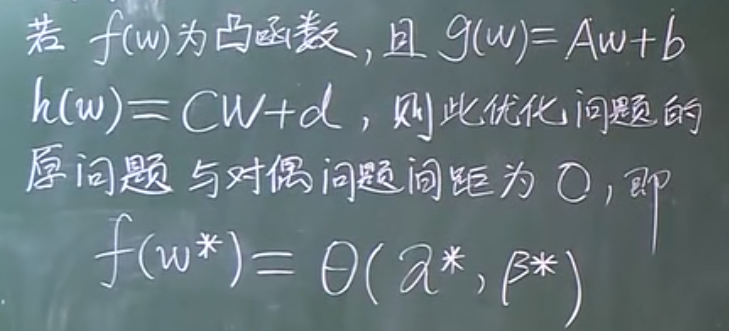 若 f(w)为凸函数,且 g(w)=Aw+b
h(w)=CW+d,则此优化问题的
原问题与对偶问题间距为0,即
f(w*)=θ(α*,β*)